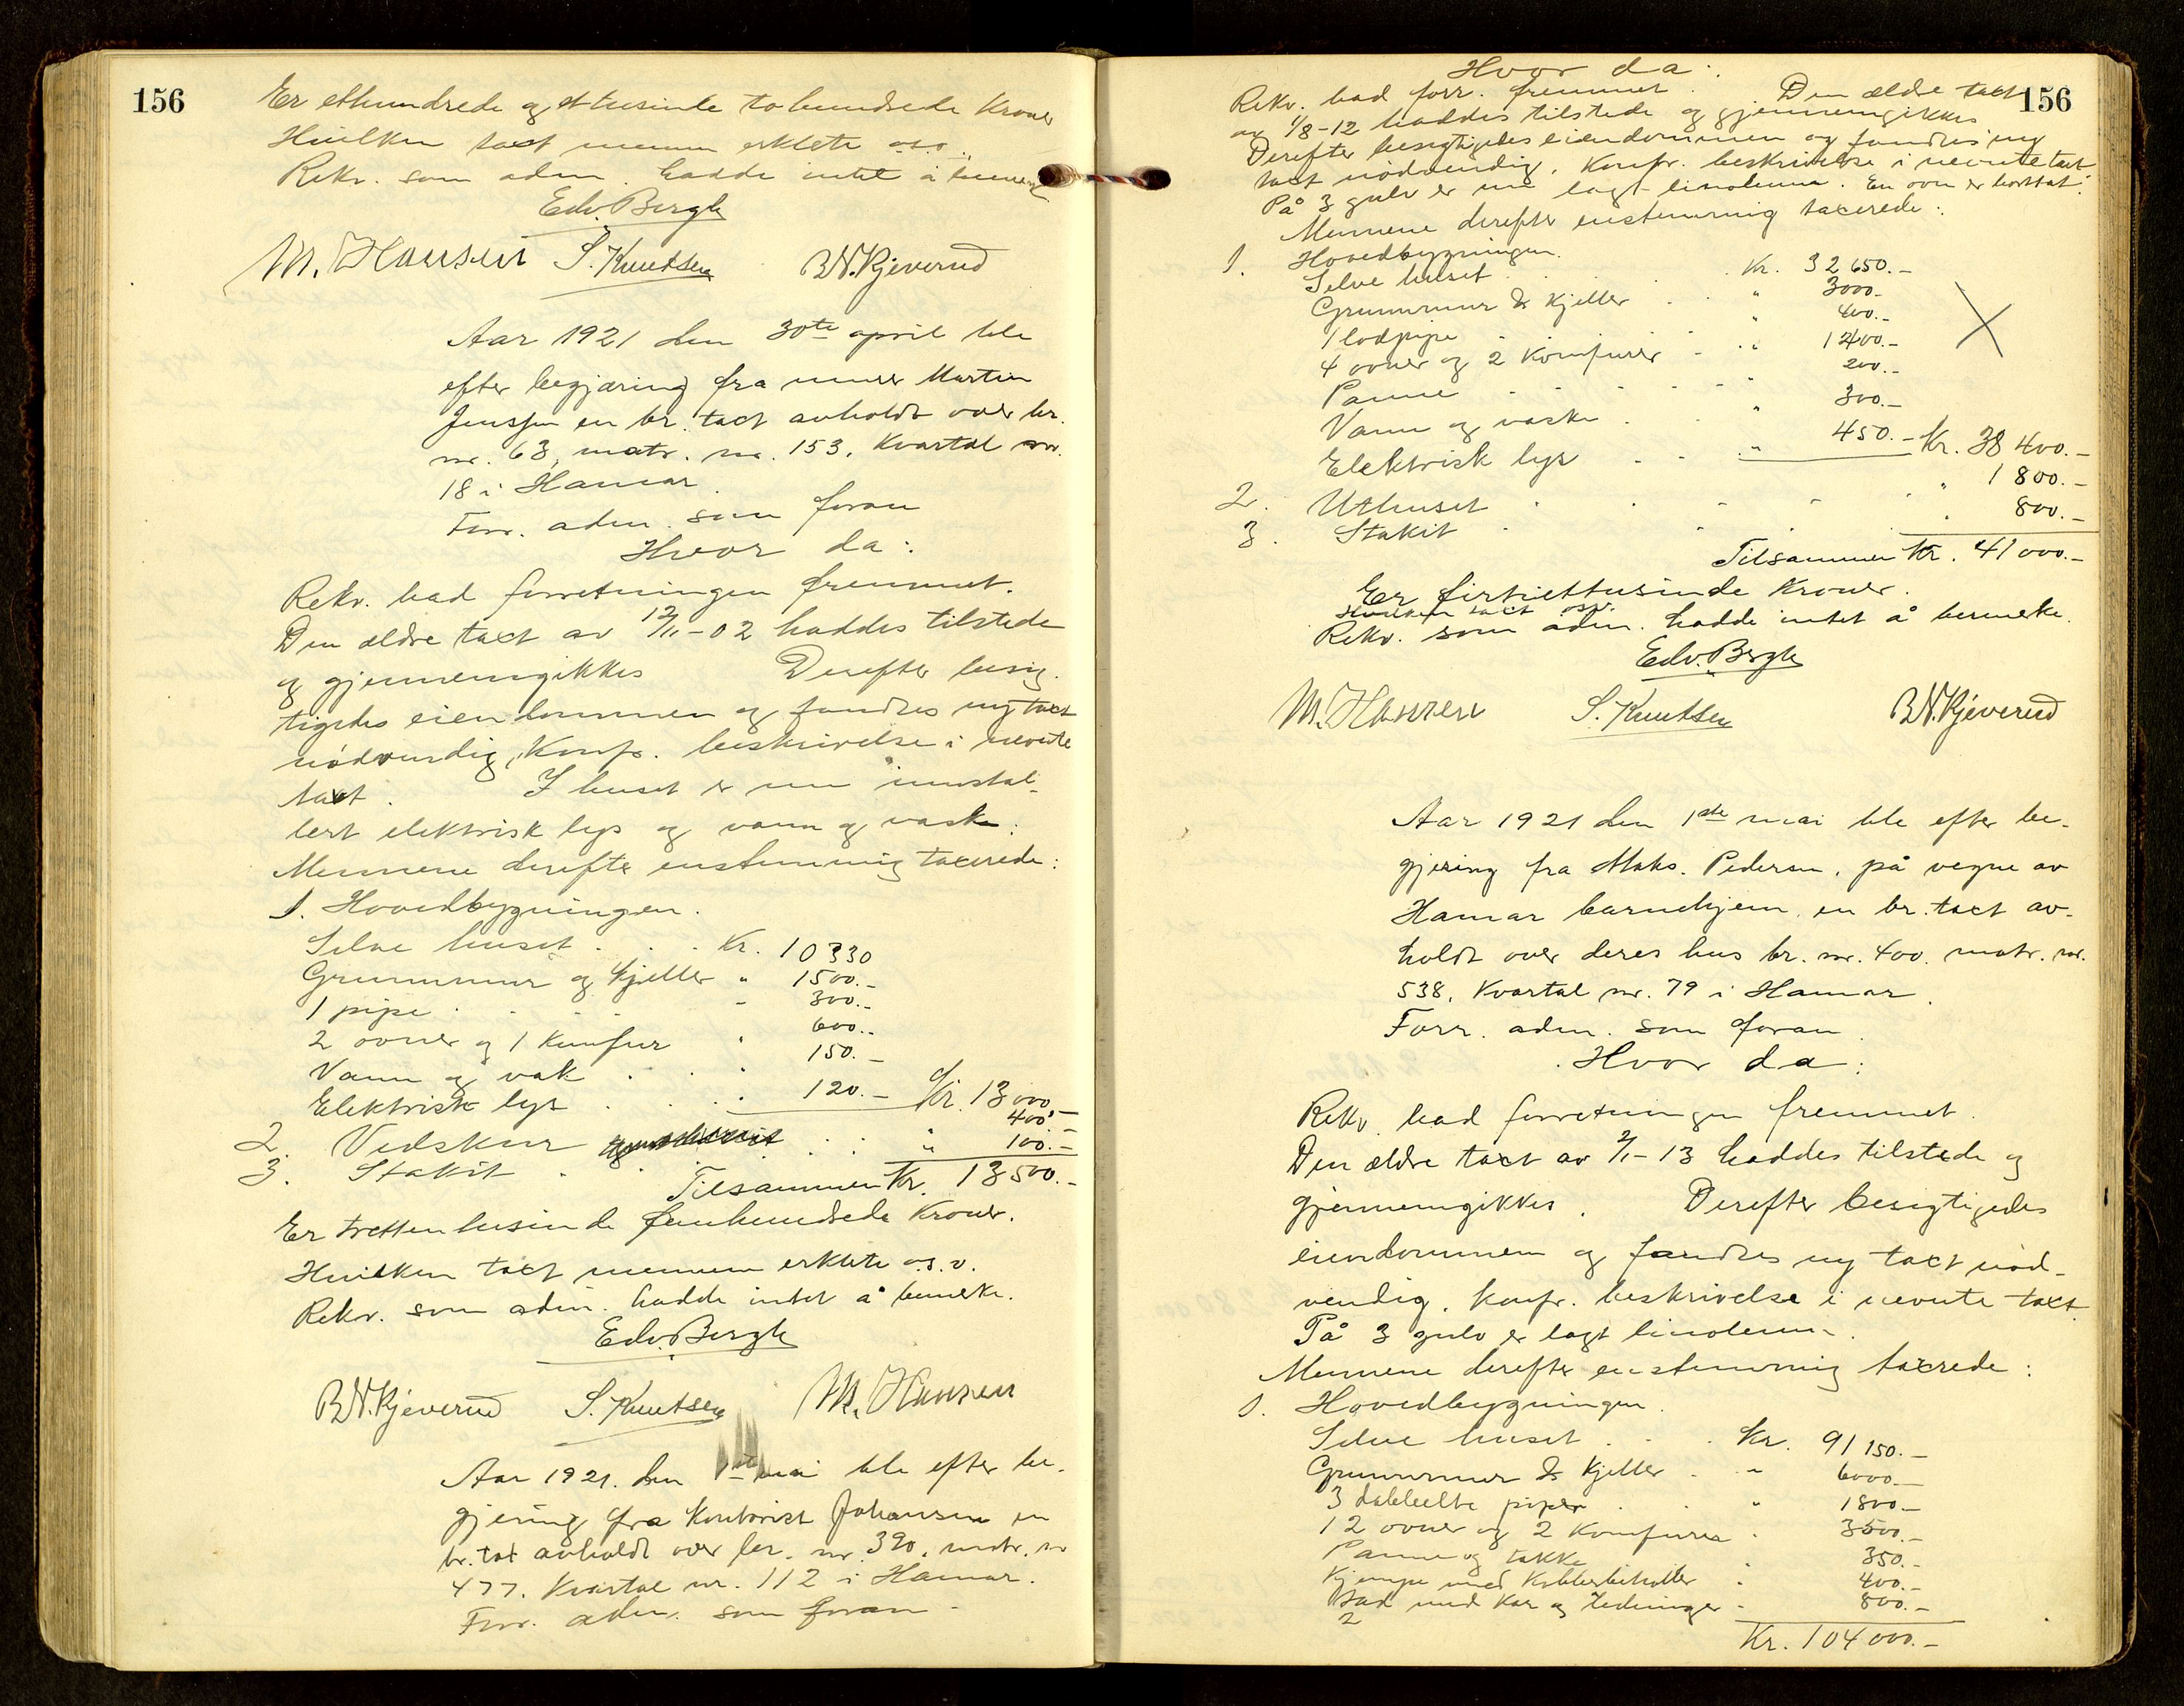 156
Er ethundrede og ettusinde tohundrede Kroner
Hvilken taxt mennene erklæte o.s.v.
Rekv. som aden. hadde intet å bemerke
Edv. Bergh
M. Hansen S. Knutsen B.N. Kjeverud
Aar 1921 den 30te april ble
efter begjæring fra murer Martin
Jenssen en br. taxt avholdt over br.
nr. 63, matr. nr. 153, Kvartal nr.
18 i Hamar.
Forr. aden. som foran
Hvor da:
Rekv. bad forretningen fremmet.
Den ældre taxt av 12/11-02 haddes tilstede
og gjennemgikkes Derefter besig-
tigedes eiendommen og fandtes ny taxt
nödvendig, Konfr. beskrivelse i nevnte
taxt. I huset er nu instal-
lert elektrisk lys og vann og vask.
Mennene derefter enstemmig taxerede:
1. Hovedbygningen.
Selve huset . . . Kr. 10330
Grunnmur og kjeller " 1500.-
1 pipe . . . " 300.-
2 ovner og 1 Komfur " 600.-
Vann og vask . . " 150.-
Elektrisk lys . . . " 120.- Kr. 13000.-
2. Vedskur . . . " 400.-
3. Stakit . . . . " 100.-
Tilsammen Kr. 13500.-
Er trettentusinde femhundrede Kroner.
Hvilken taxt mennene erklæte o.s.v.
Rekv. som aden. hadde intet å bemerke.
Edv. Bergh
B.N. Kjeverud S. Knutsen M. Hansen
Aar 1921. den 1ste mai ble efter be-
gjering fra Kontorist Johansen en
br. taxt avholdt over br. nr. 390. matr. nr
477. Kvartal nr. 112 i Hamar.
Forr. aden. som foran
156
Hvor da:
Rekv. bad forr. fremmet. Den ældre taxt
av 1/8-12 haddes tilstede og gjennemgikkes
Derefter besigtigedes eiendommen og fandtes ny
taxt nödvendig. Konfr. beskrivelse i nevnte taxt
På 3 gulv er nu lagt linoleum. En ovn er borttat.
Mennene derefter enstemmig taxerede:
1. Hovedbygningen.
Selve huset . . . Kr. 32650.-
Grunnmur & Kjeller . . " 3000.-
1 lodpipe . . . " 400.-
4 ovner og 2 Komfurer - " 1400.-
Panne - - - - " 200.-
Vann og vaske . . " 300.-
Elektrisk lys - - " 450.- Kr. 38400.-
2. Uthuset . . . " 1800.-
3. Stakit . . . . " 800.-
Tilsammen Kr. 41000.-
Er firtiettusinde Kroner.
Hvilken taxt osv.
Rekv. som aden. hadde intet å bemerke.
Edv. Bergh
M. Hansen S. Knutsen B.N. Kjeverud
Aar 1921 den 1ste mai ble efter be-
gjering fra Maks. Pedersen, på vegne av
Hamar barnehjem, en br. taxt av-
holdt over deres hus br. nr. 400. matr. nr.
538, Kvartal nr. 79 i Hamar.
Forr. aden. som foran.
Hvor da:
Rekv. bad forretningen fremmet.
Den ældre taxt av 2/1-13 haddes tilstede og
gjennemgikkes. Derefter besigtigedes
eiendommen og fandtes ny taxt nöd-
vendig, konfr. beskrivelse i nevnte taxt
På 3 gulv er lagt linoleum.
Mennene derefter enstemmig taxerede:
1. Hovedbygningen.
Selve huset . . . Kr. 91150.-
Grunnmur & Kjeller . " 6000.-
3 dobbelte piper . . " 1800.-
12 ovner og 2 Komfurer . 3500.-
Panne og takke " 350.-
Kjempe med Kobberbeholder " 400.-
Bad med Kar og ledninger - 800.-
2
Kr. 104000.-